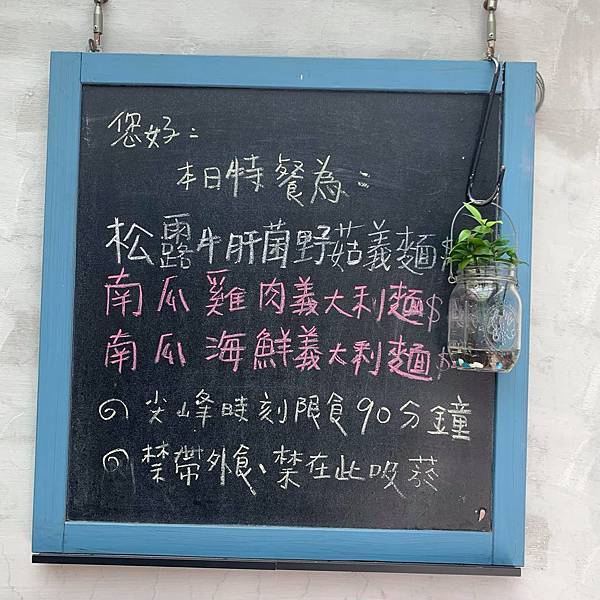 您好：
本日特餐為：
松露牛肝菌野菇義麵$
南瓜雞肉義大利麵$
南瓜海鮮義大利麵$
尖峰時刻限食90分鐘
禁帶外食、禁在此吸菸